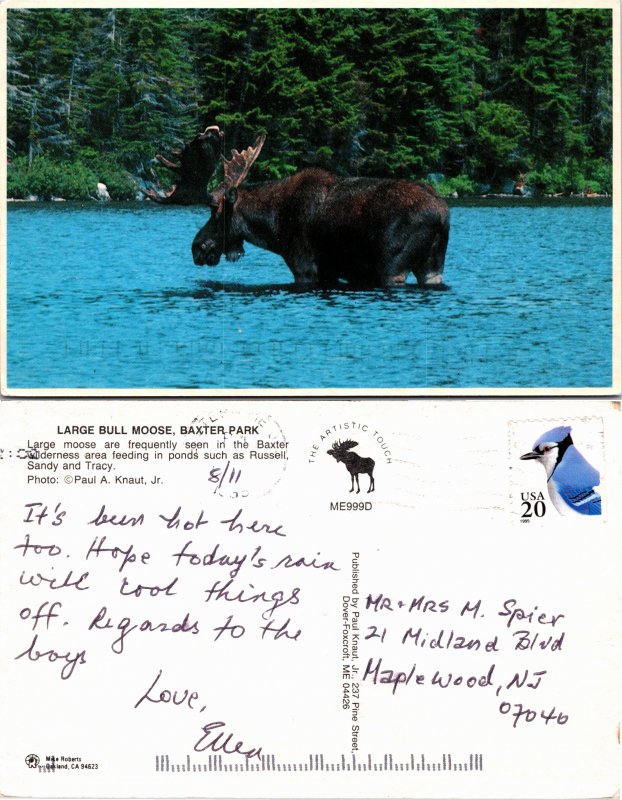 LARGE BULL MOOSE, BAXTER PARK
Large moose are frequently seen in the Baxter
wilderness area feeding in ponds such as Russell,
Sandy and Tracy.
Photo: ©Paul A. Knaut, Jr.
8/11
THE ARTISTIC TOUCH
ME999D
USA
20
1995
It's been hot here
too. Hope today's rain
will cool things
off. Regards to the
boys
Love,
Ellen
Published by Paul Knaut, Jr., 237 Pine Street,
Dover-Foxcroft, ME 04426
MR+MRS M. Spier
21 Midland Blvd
Maplewood, NJ
07040
Mike Roberts
Oakland, CA 94623